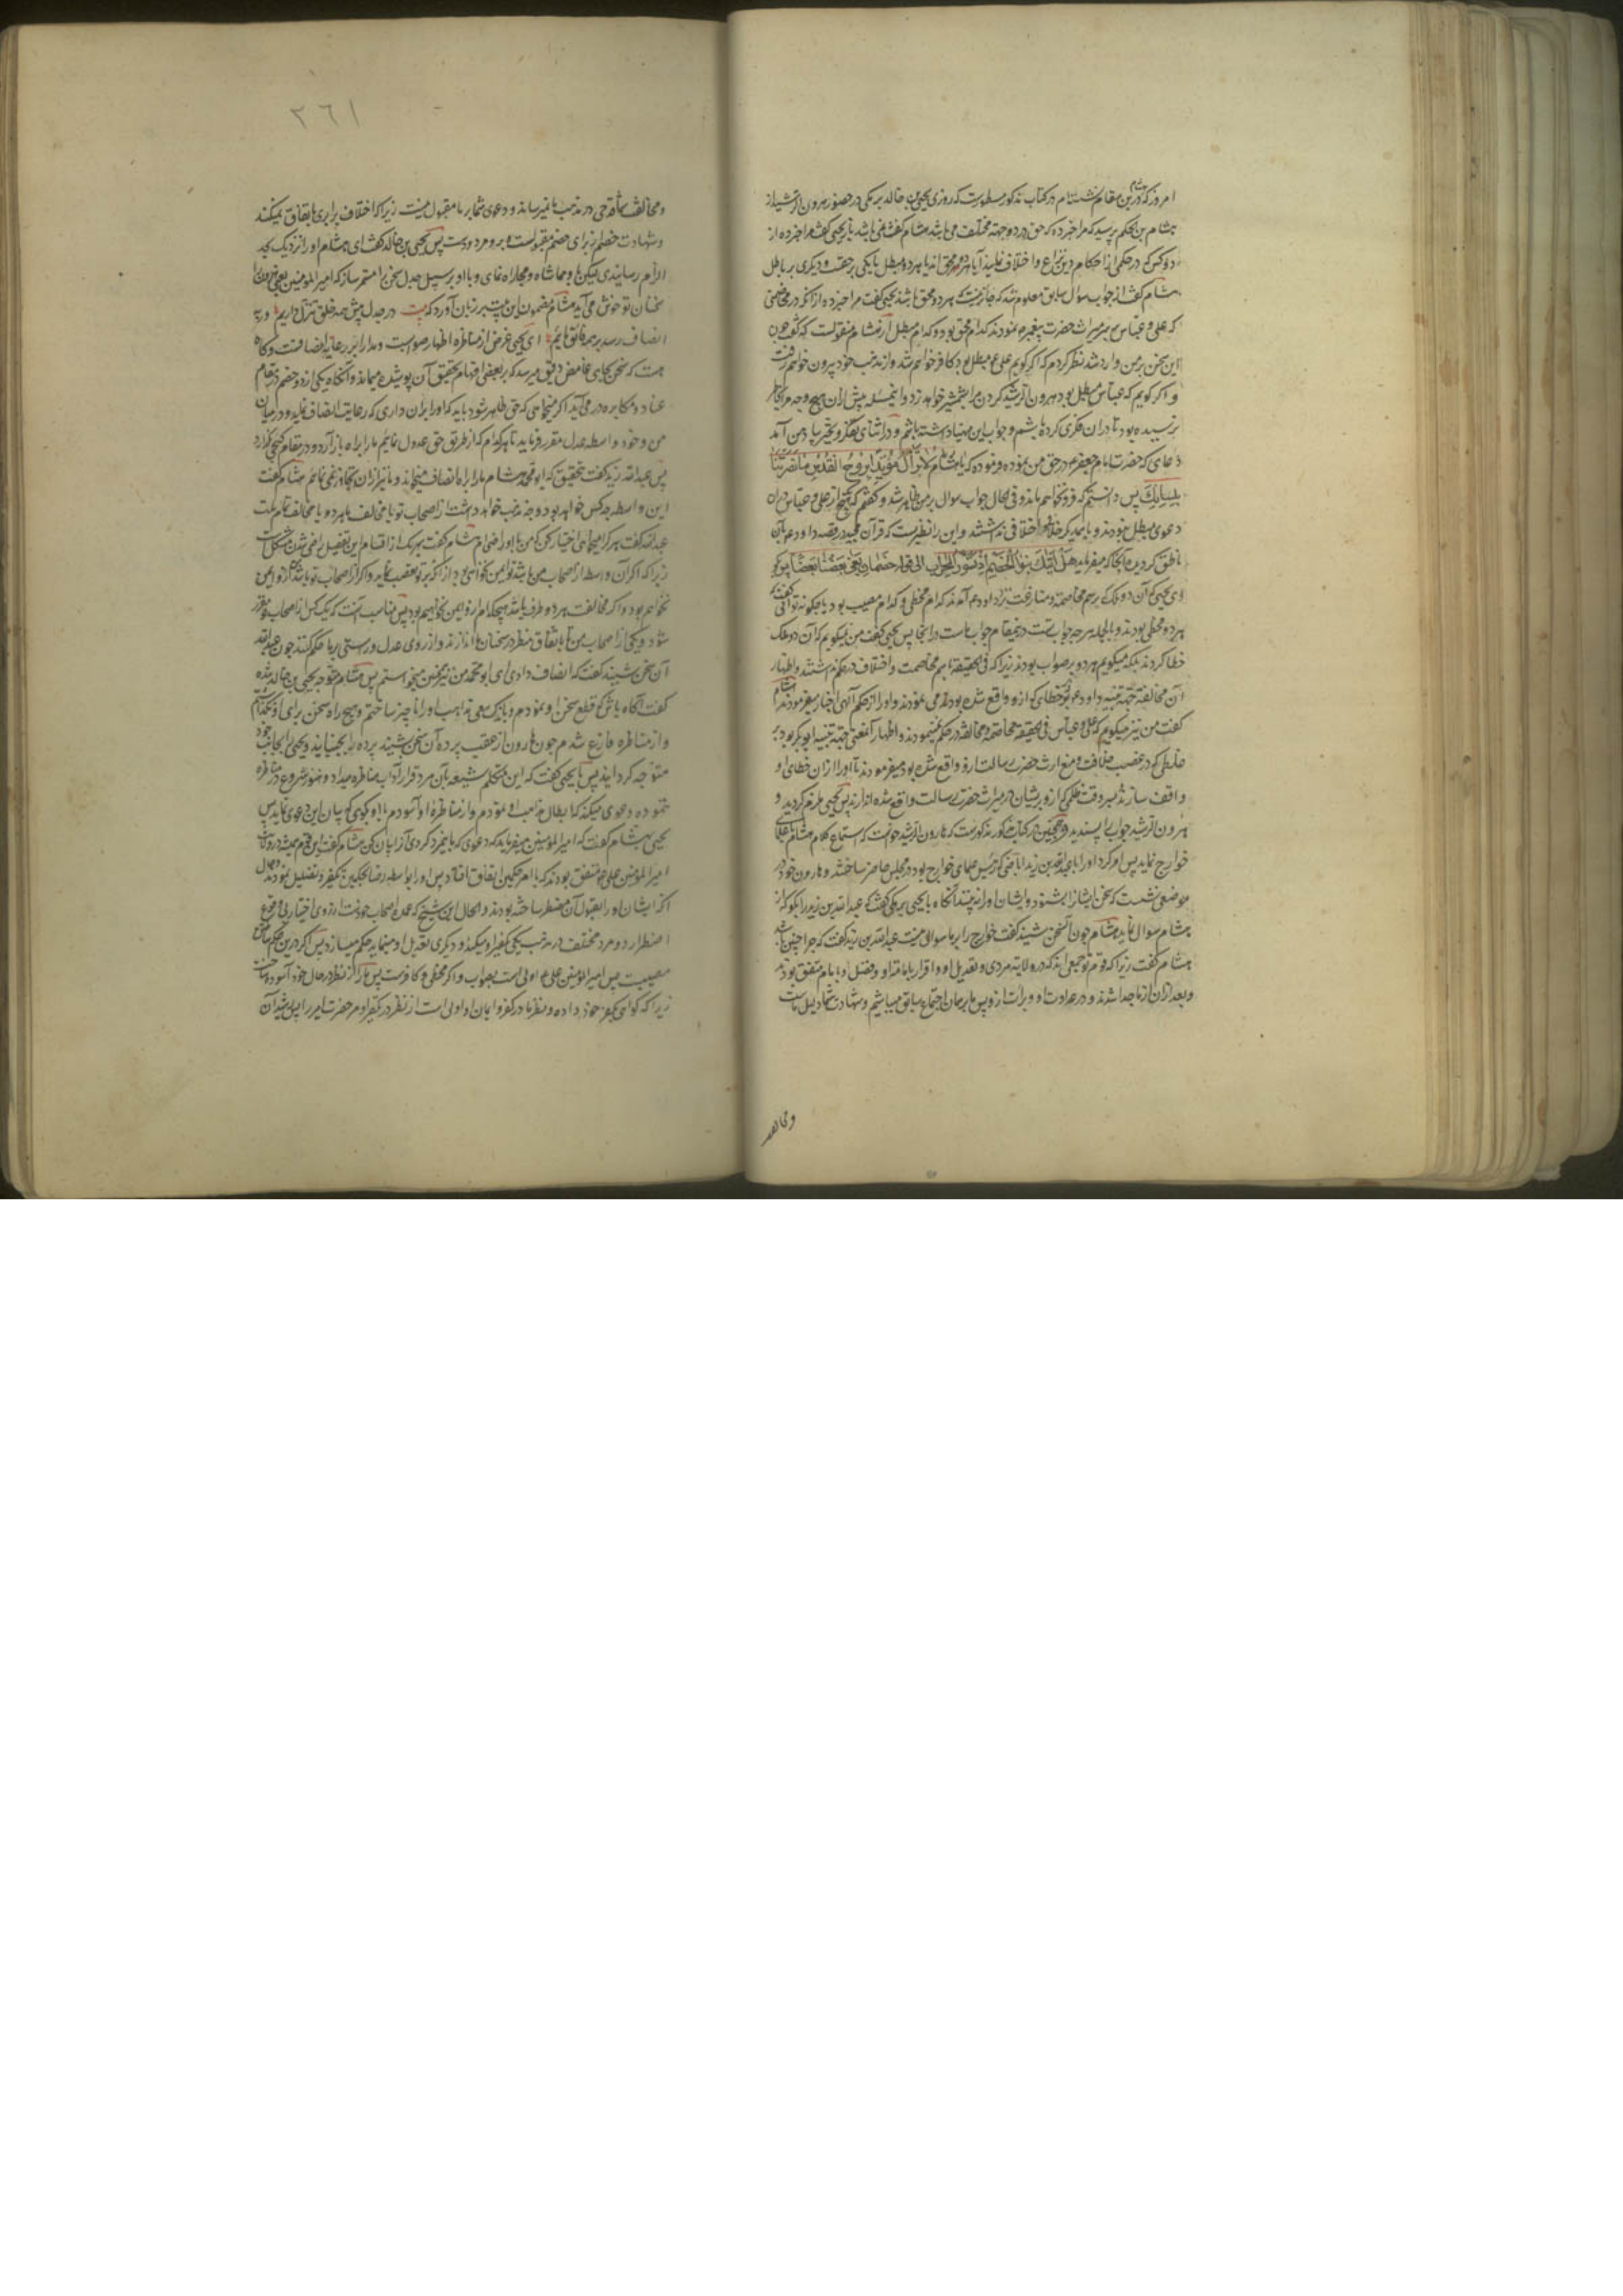 امروز که درین مقام نشسته‌ام در کتاب مذکور مسطورست که روزی یحیی بن خالد برمکی در حضور هرون الرشید از
هشام بن الحکم پرسید که مرا خبر ده که حق در دو جهة مختلف می باشد هشام گفت نمی باشد باز یحیی گفت مرا خبر ده از
دو کس که در حکمی از احکام دین نزاع و اختلاف نمایند آیا هر دو محق اند یا هر دو مبطل یا یکی بر حقست و دیگری بر باطل
هشام گفت از جواب سوال سابق معلوم شد که جایز نیست که هر دو محق باشند یحیی گفت مرا خبر ده از آنکه در مخاصمتی
که علی و عباس بر سر میراث حضرت پیغمبر نمودند کدام محق بود و کدام مبطل از هشام منقولست که گفت چون
این سخن بر من وارد شد نظر کردم که اگر گویم علی ع مبطل بود کافر خواهم شد و از مذهب خود بیرون خواهم رفت
و اگر گویم که عباس مبطل بود هرون الرشید گردن مرا بشمشیر خواهد زد و این مسئله پیش ازان بهیچ وجه مرا بخاطر
نرسیده بود تا دران فکری کرده باشم و جواب این مهیا داشته باشم و در اثنای تفکر و تحیر بیاد من آمد
دعای که حضرت امام جعفر ع در حق من نموده و فرموده که یا هشام لا تزال مؤیدا بروح القدس ما نصرتنا
بلسانک پس دانستم که فرو نخواهم ماند و فی الحال جواب سوال بر من ظاهر شد و گفتم که هیچ از علی و عباس دران
دعوی مبطل نبودند و با همدیگر خلاف و اختلافی نداشتند و این را نظیریست که قرآن مجید در قصه داود ع بآن
ناطق گردیده آنجا که میفرماید هل اتیک نبؤا الخصم اذ تسوروا المحراب الی قوله خصمان بغی بعضنا بعضا پس گو
ای یحیی که آن دو ملک که برسم مخاصمه و منازعت نزد داود ع آمدند کدام مخطی و کدام مصیب بود یا چگونه توانی گفت که
هر دو مخطی بودند و بالجمله هر چه جواب تست درین مقام جواب ماست در آنجا پس یحیی گفت من نمیگویم که آن دو ملک
خطا کردند بلکه میگویم هر دو بر صواب بودند زیرا که فی الحقیقة باهم مخاصمت و اختلاف در حکم نداشتند و اظهار
آن مخالفة جهة تنبیه داود ع بر خطای که ازو واقع شده بود می نمودند و او را از حکم الهی اخبار میفرمودند هشام
گفت من نیز میگویم که علی و عباس فی الحقیقة مخاصمه و مخالفه در حکم نمینمودند و اظهار آنمعنی جهة تنبیه ابوبکر بود بر
غلطی که در غصب خلافت و منع ارث حضرت رسالت ازو واقع شده بود میفرمودند تا او را ازان خطای او
واقف سازند بروقت ظلمی که ازو بریشان در میراث حضرت رسالت واقع شده اندازند پس یحیی ملزم گردید و
هرون الرشید جواب را پسندید و همچنین در کتاب مذکور مذکورست که هارون الرشید خواست که استماع کلام هشام با علمای
خوارج نماید پس امر کرد او را با عبدالله بن زید اباضی که رئیس علمای خوارج بود در مجلس حاضر ساختند و هارون خود در
موضعی نشست که سخن ایشان را بشنود و ایشان او را نبینند آنگاه با یحیی برمکی گفت که عبدالله بن زید را بگو که از
هشام سوال نماید هشام چون آن سخن شنید گفت خوارج را بر ما سوالی نیست عبدالله بن زید گفت که چرا چنین باشد
هشام گفت زیرا که قوم تو جمعی اند که در ولایة مردی و تعدیل او و اقرار بامامت او و فضل او با ما متفق بودند
و بعد ازان از ما جدا شدند و در عداوت او و برائت ازو پس ما بر همان اجماع سابق میباشیم و شهادت شما دلیل ماست
و مخالفت
٣٦١
و مخالفت شما قدحی در مذهب ما نمیرساند و دعوی شما بر ما مقبول نیست زیرا که اختلاف برابری با اتفاق نمیکند
و شهادت خصم از برای خصم مقبولست و برو مردودست پس یحیی بن خالد گفت ای هشام او را نزدیک بحد
الزام رسانیدی لیکن با وی مماشاه و مجاراه نمای و با او بر سبیل جدل سخن را مستمر ساز که امیرالمؤمنین یعنی هرون را
سخنان تو خوش می آید هشام مضمون این بیت بر زبان آورد که بیت در جدل پیش همه خلق تنزل داریم ور به
انصاف رسد بر همه فائق مائیم ای یحیی غرض از مناظره اظهار صوابست و مدار آن بر رعایة انصافست و گاه
هست که سخن بجای غامض دقیق میرسد که بر بعضی افهام تحقیق آن پوشیده میماند و آنگاه یکی از دو خصم در مقام
عناد و مکابره در می آید اگر میخواهی که حق ظاهر شود باید که او را بران داری که رعایت انصاف نماید و در میان
من و خود واسطه عدل مقرر فرماید تا هر کدام که از طریق حق عدول نمائیم ما را براه باز آرد و در مقام کجی نگذارد
پس عبدالله زید گفت بتحقیق که ابو محمد هشام ما را براه انصاف میخواند و ما نیز ازان تجاوز نمی نمائیم هشام گفت
این واسطه چه کس خواهد بود و چه مذهب خواهد داشت از اصحاب تو یا مخالف ما هر دو یا مخالف تمام ملت
عبدالله گفت هر که را میخواهی اختیار کن که من باو راضی ام هشام گفت بهر یک از اقسام این تفصیل راضی شدن مشکلست
زیرا که اگر آن واسطه از اصحاب من باشد تو ایمن نخواهی بود از آنکه بر تو تعصب نماید و اگر از اصحاب تو باشد من ازو ایمن
نخواهم بود و اگر مخالفت هر دو طرف باشد هیچکدام ازو ایمن نخواهیم بود پس مناسب آنست که یک کس از اصحاب تو مقرر
شود و یکی از اصحاب من تا باتفاق نظر در سخنان ما اندازند و از روی عدل و راستی بر ما حکم کنند چون عبدالله
آن سخن شنید گفت که انصاف دادی ای ابو محمد من نیز همین میخواستم پس هشام متوجه یحیی بن خالد شده
گفت آگاه باش که قطع سخن او نمودم و باندک سعی مذاهب او را ناچیز ساختم و هیچ راه سخن برای او نگذاشتم
و از مناظره فارغ شدم چون هارون از عقب پرده آن سخن شنید پرده را بجنبانید و یحیی را بجانب خود
متوجه گردانید پس با یحیی گفت که این متکلم شیعه بآن مرد قرار آداب مناظره میداد و هنوز شروع در مناظره
ننموده دعوی میکند که ابطال مذاهب او نمودم و از مناظره او آسودم با او بگوی که بیان این دعوی نماید پس
یحیی بهشام گفت که امیرالمؤمنین میفرماید که دعوی که با این مرد کردی آنرا بیان کن هشام گفت این قوم همیشه در ولایت
امیرالمؤمنین علی با ما متفق بودند که تا امر حکمین اتفاق افتاد پس او را بواسطه رضا بحکمین تکفیر و تضلیل نمودند و حال
آنکه ایشان او را بقبول آن مضطر ساخته بودند و الحال این شیخ که عمده اصحاب خودست از روی اختیار بی وقوع
اضطرار دو مرد مختلف در مذهب یکی تکفیر او میکند و دیگری تعدیل او مینماید حکم میسازد پس اگر درین حکم ساختن
مصیبست پس امیرالمؤمنین علی ع اولی است بصواب و اگر مخطی و کافرست پس ما را از نظر در حال خود آسوده ساخت
زیرا که گواهی بکفر خود داده و نظر ما در کفر و ایمان او اولی است از نظر در تکفیر او مر حضرت امیر را پس رشید آن